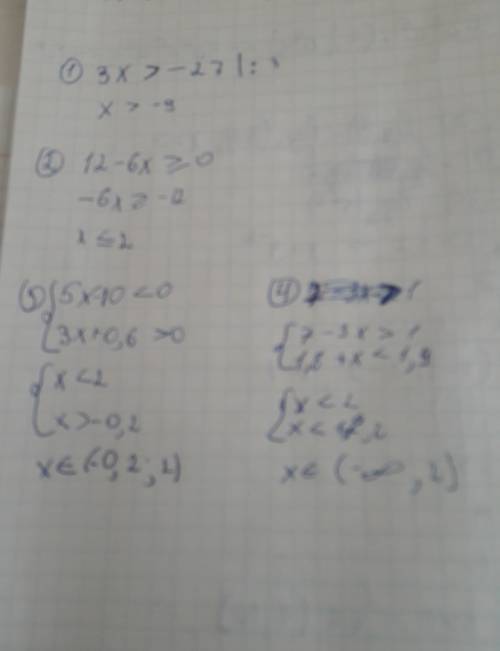 ① 3x > -27 | :
x > -9
② 12-6x ≥ 0
-6x ≥ -12
x ≤ 2
③ { 5x-10 < 0
3x+0,6 > 0
{ x < 2
x > -0,2
x ∈ (-0,2 ; 2)
④
{ 7-3x > 1
1,8 + x < 1,9
{ x < 2
x <
x ∈ (-∞ , 2)